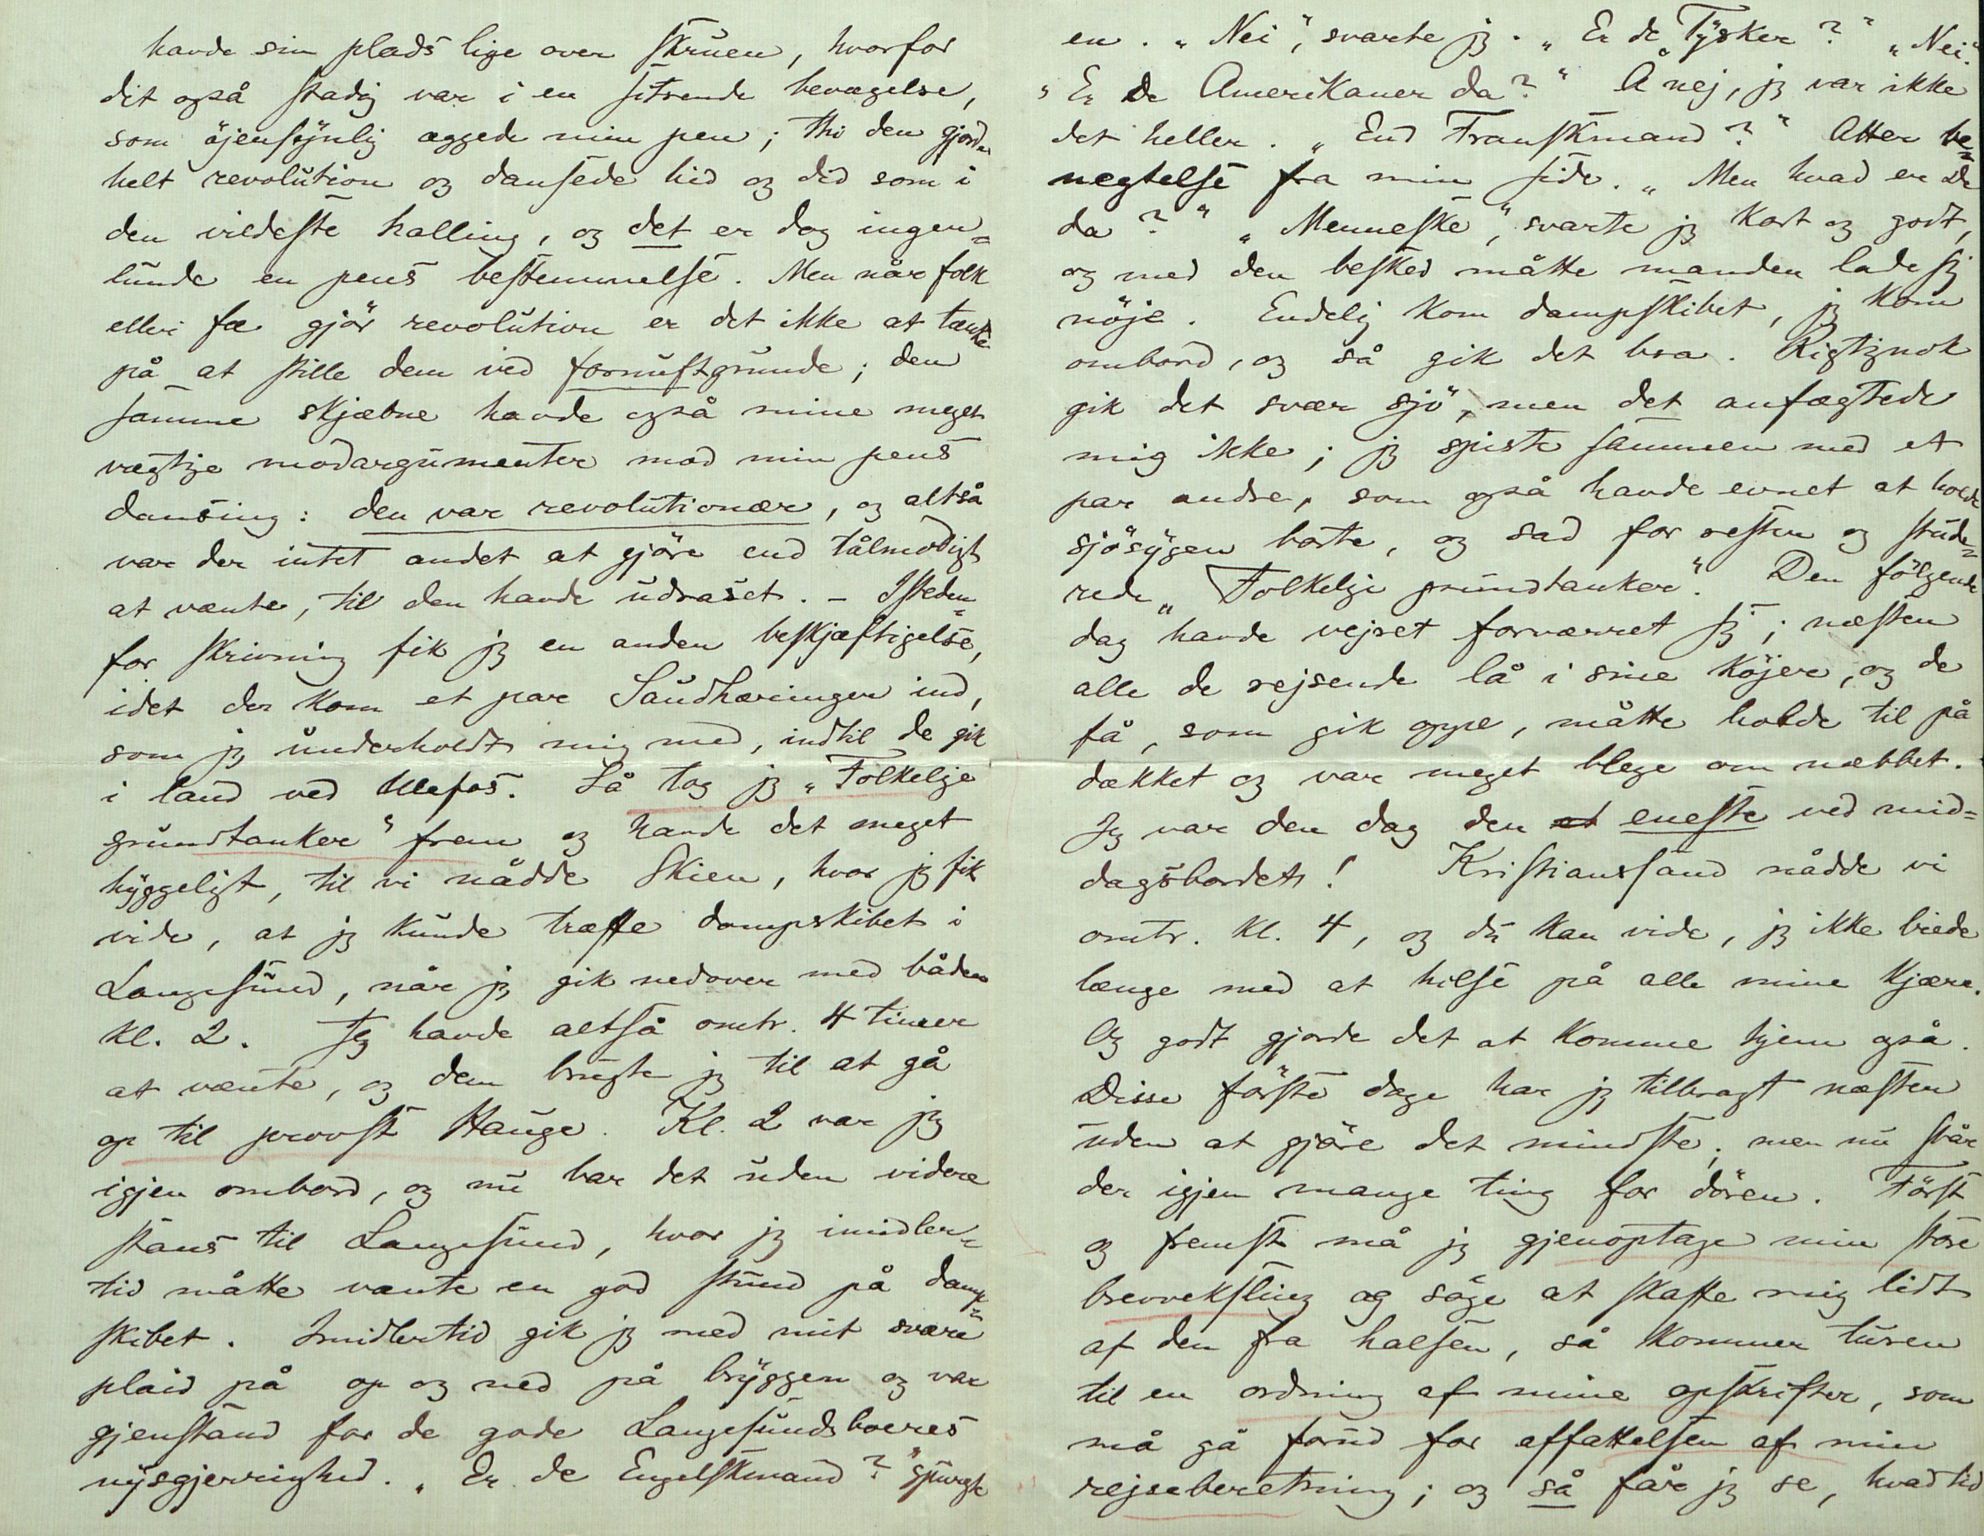 havde sin plads lige over skruen, hvorfor
det også stadig var i en sitrende bevægelse,
som öjensynlig æggede min pen; thi den gjorde
helt revolution og dansede hid og did som i
den vildeste halling, og det er dog ingen=
lunde en pens bestemmelse. Men når folk
eller fæ gjör revolution er det ikke at tænke
på at stille dem ved fornuftgrunde; den
samme skjæbne havde også mine meget
vægtige modargumenter mod min pens
dansing: den var revolutionær, og altså
var der intet andet at gjöre end tålmodigt
at vænte, til den havde udraset. – Isteden=
for skrivning fik jg en anden beskjæftigelse,
idet der kom et par Saudhæringer ind,
som jg underholdt mig med, indtil de gik
i land ved Ulefos. Så tog jg „Folkelige
grundtanker“ frem og havde det meget
hyggeligt, til vi nådde Skien, hvor jg fik
vide, at jg kunde træffe dampskibet i
Langesund, når jg gik nedover med båden
kl. 2. Jeg havde altså omtr. 4 timer
at vænte, og dem brugte jg til at gå
op til provst Hauge. Kl. 2 var jeg
igjen ombord, og nu bar det uden videre
stans til Langesund, hvor jg imidler=
tid måtte vænte en god stund på damp=
skibet. Imidlertid gik jg med mit svære
plaid på op og ned på bryggen og var
gjenstand for de gode Langesundsboeres
nysgjerrighed. „Er de Engelskmand?“ spurgte
en. „Nei“, svarte jg. „Er de Tysker?“ „Nei.“
„Er De Amerikaner da?“ Å nej, jg var ikke
det heller. „End Franskmand?“ Atter be=
negtelse fra min side. „Men hvad er De
da?“ „Menneske“, svarte jg kort og godt,
og med den besked måtte manden lade sig
nöje. Endelig kom dampskibet, jg kom
ombord, og så gik det bra. Rigtignok
gik det svær sjö, men det anfægtede
mig ikke; jg spiste sammen med et
par andre, som også havde evnet at holde
sjösygen borte, og sad for resten og stude=
rede „Folkelige grundtanker“. Den fölgende
dag havde vejret forværret sig; næsten
alle de rejsende lå i sine köjer, og de
få, som gik oppe, måtte holde til på
dækket og var meget blege om næbbet.
Jeg var den dag den et eneste ved mid=
dagsbordet! Kristianssand nådde vi
omtr. kl. 4, og du kan vide, jg ikke biede
længe med at hilse på alle mine kjære.
Og godt gjorde det at komme hjem også.
Disse förste dage har jg tilbragt næsten
uden at gjöre det mindste; men nu står
der igjen mange ting for dören. Först
og fremst må jg gjenoptage min store
brevveksling og söge at skaffe mig lidt
af den fra halsen, så kommer turen
til en ordning af mine opskrifter, som
må gå forud for affattelsen af min
rejseberetning; og så får jg se, hvad tid